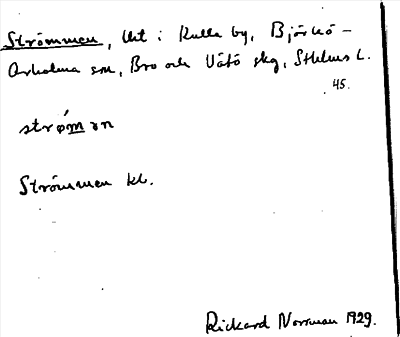 Strömmen, lht i Kulla by, Björkö-
Arholma sn, Bro och Vätö skg, Sthlms L.
45.
strømən
Strömmen kl.
Rickard Norrman 1929.